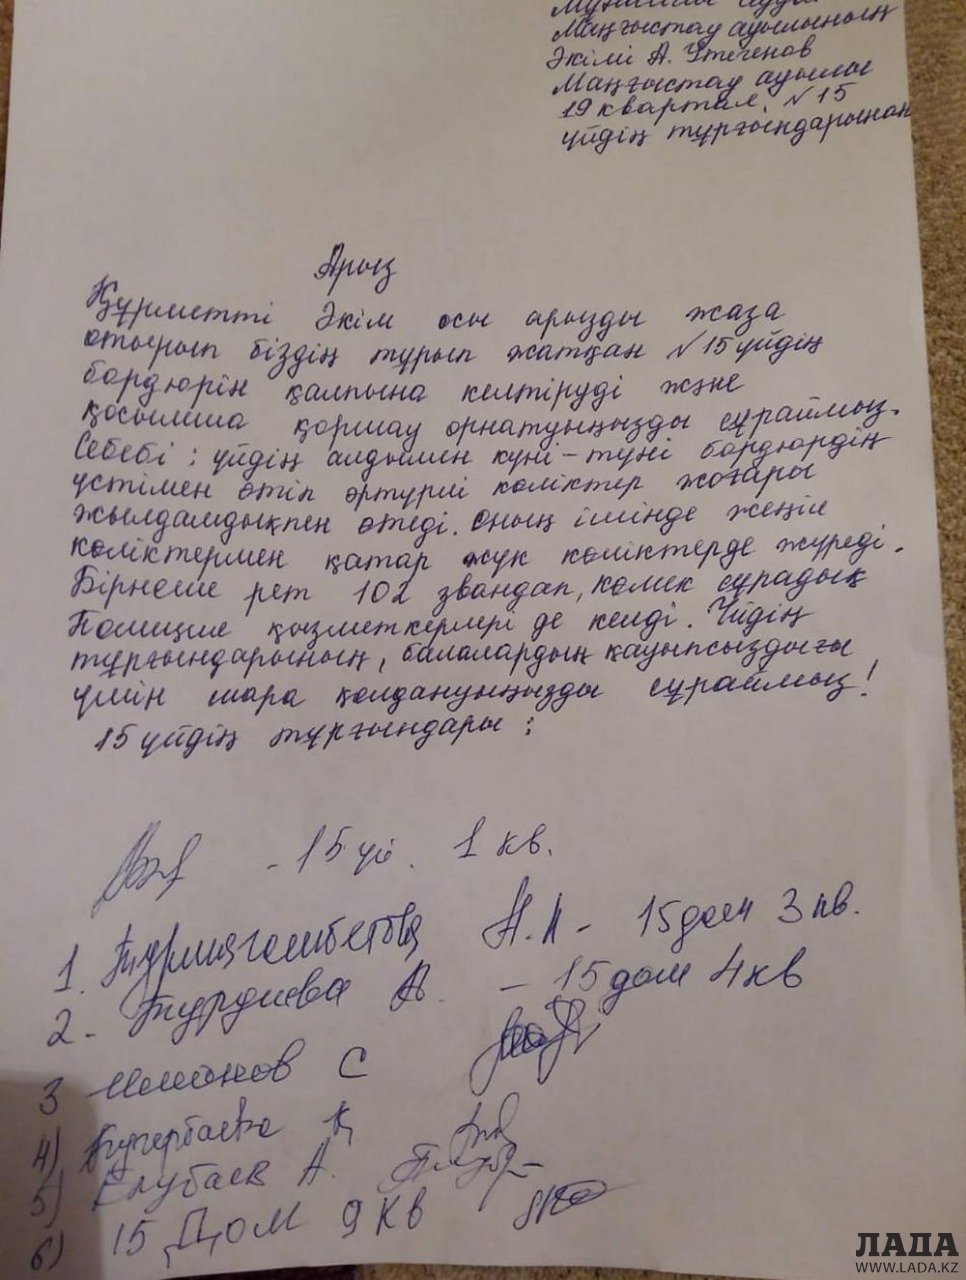 Маңғыстау ауылының
Әкімі А. Утегенов
Маңғыстау ауылы
19 квартал, N 15
үйдің тұрғындарынан
Арыз
Құрметті Әкім осы арызды жаза
отырып біздің тұрып жатқан N 15 үйдің
бордюрін қалпына келтіруді және
қосымша қоршау орнатуыңызды сұраймыз.
Себебі: үйдің алдымен күні-түні бордюрдің
үстімен өтіп әртүрлі көліктер жоғары
жылдамдықпен өтеді. Оның ішінде жеңіл
көліктермен қатар жүк көліктерде жүреді.
Бірнеше рет 102 звандап, көмек сұрадық
Полиция қызметкерлері де келді. Үйдің
тұрғындарының, балалардың қауыпсыздығы
үшін шара қолдануыңызды сұраймыз!
15 үйдің тұрғындары:
- 15 үй. 1 кв.
1. Н.А - 15 дом 3 кв.
2 - Турдиева А. - 15 дом 4 кв
3 С
4) Қ
5) Елубаев А.
6) 15 ДОМ 9 КВ
ЛАДА
WWW.LADA.KZ